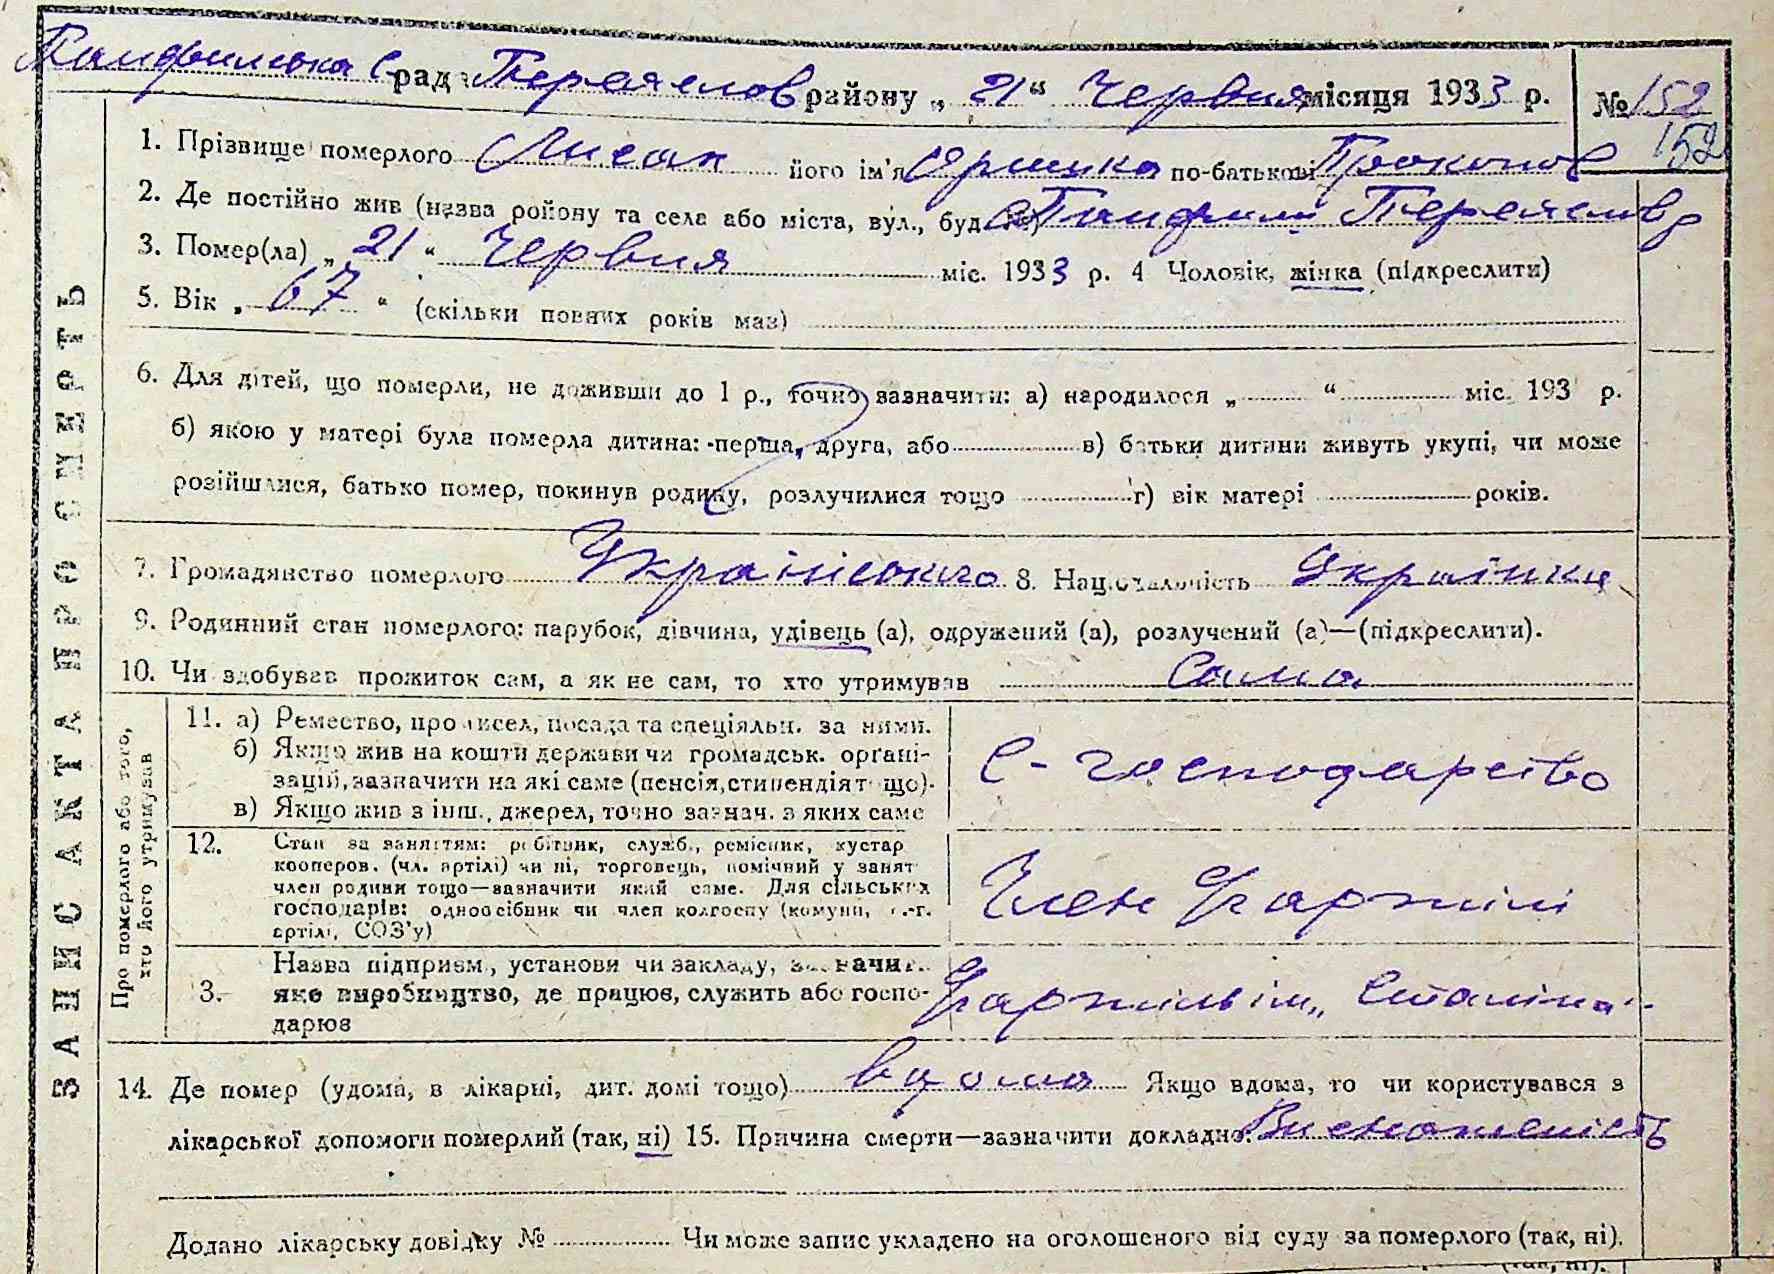 Панфильська с рада Переяслов району „ 21 “ Червня місяця 1933 р. № 152
152
1. Прізвище померлого Лисак його ім'я Яришка по-батькові Прокопов
2. Де постійно жив (назва ройону та села або міста, вул., буд. №) с Панфили Переяслов р
3. Помер(ла) „ 21 “ Червня міс. 1933 р. 4 Чоловік, жінка (підкреслити)
5. Вік „ 67 “ (скільки повних років має)
6. Для дітей, що померли, не доживши до 1 р., точно зазначити: а) народилося „ “ міс. 193 р.
б) якою у матері була померла дитина: перша, друга, або в) батьки дитини живуть укупі, чи може
розійшлися, батько помер, покинув родину, розлучилися тощо г) вік матері років.
7. Громадянство померлого Українського 8. Національність Українка
9. Родинний стан померлого: парубок, дівчина, удівець (а), одружений (а), розлучений (а)—(підкреслити).
10. Чи здобував прожиток сам, а як не сам, то хто утримував Сама
ЗАПИС АКТА ПРО СМЕРТЬ
Про померлого або того,
хто його утримував
11. а) Ремество, промисел, посада та спеціяльн. за ними.
б) Якщо жив на кошти держави чи громадськ. органі-
зацій, зазначити на які саме (пенсія, стипендія т що).
в) Якщо жив з інш., джерел, точно зазнач. з яких саме
С - господарство
12. Стан за заняттям: робітник, служб., ремісник, кустар
кооперов. (чл. артілі) чи ні, торговець, помічний у занят
член родини тощо—зазначити який саме. Для сільських
господарів: одноосібник чи член колгоспу (комуни, с.-г.
артілі, СОЗ'у)
Член Ѓартілі
3. Назва підприєм., установи чи закладу, зазначит.
яке виробництво, де працює, служить або госпо-
дарює
артіль ім „ Сталіна “
14. Де помер (удома, в лікарні, дит. домі тощо) вдома Якщо вдома, то чи користувався з
лікарської допомоги померлий (так, ні) 15. Причина смерти—зазначити докладно: Виснаженість
Додано лікарську довідку № Чи може запис укладено на оголошеного від суду за померлого (так, ні).
(так, ні).